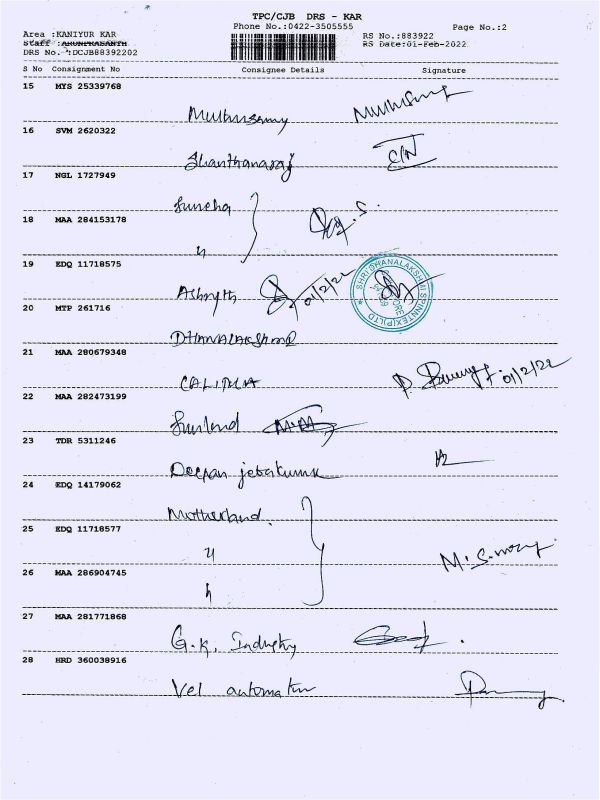 TPC/CJB DRS - KAR
Phone No.:0422-3505555 Page No.:2
Area :KANIYUR KAR RS No.:883922
Staff :ARUNPRASANTH RS Date:01-Feb-2022
DRS No. :DCJB88392202
S No Consignment No Consignee Details Signature
15 MYS 25339768
Muthusamy
16 SVM 2620322
Shanthanaraj
17 NGL 1727949
18 MAA 284153178
"
19 EDQ 11718575
01/2/22
SHRI DHANALAKSHMI SPINNTEX(P)LTD
20 MTP 261716
21 MAA 280679348
01/2/22
22 MAA 282473199
23 TDR 5311246
Deepan jebakumar
24 EDQ 14179062
Motherland
25 EDQ 11718577
"
26 MAA 286904745
"
27 MAA 281771868
G.K. Industry
28 HRD 360038916
Vel automation